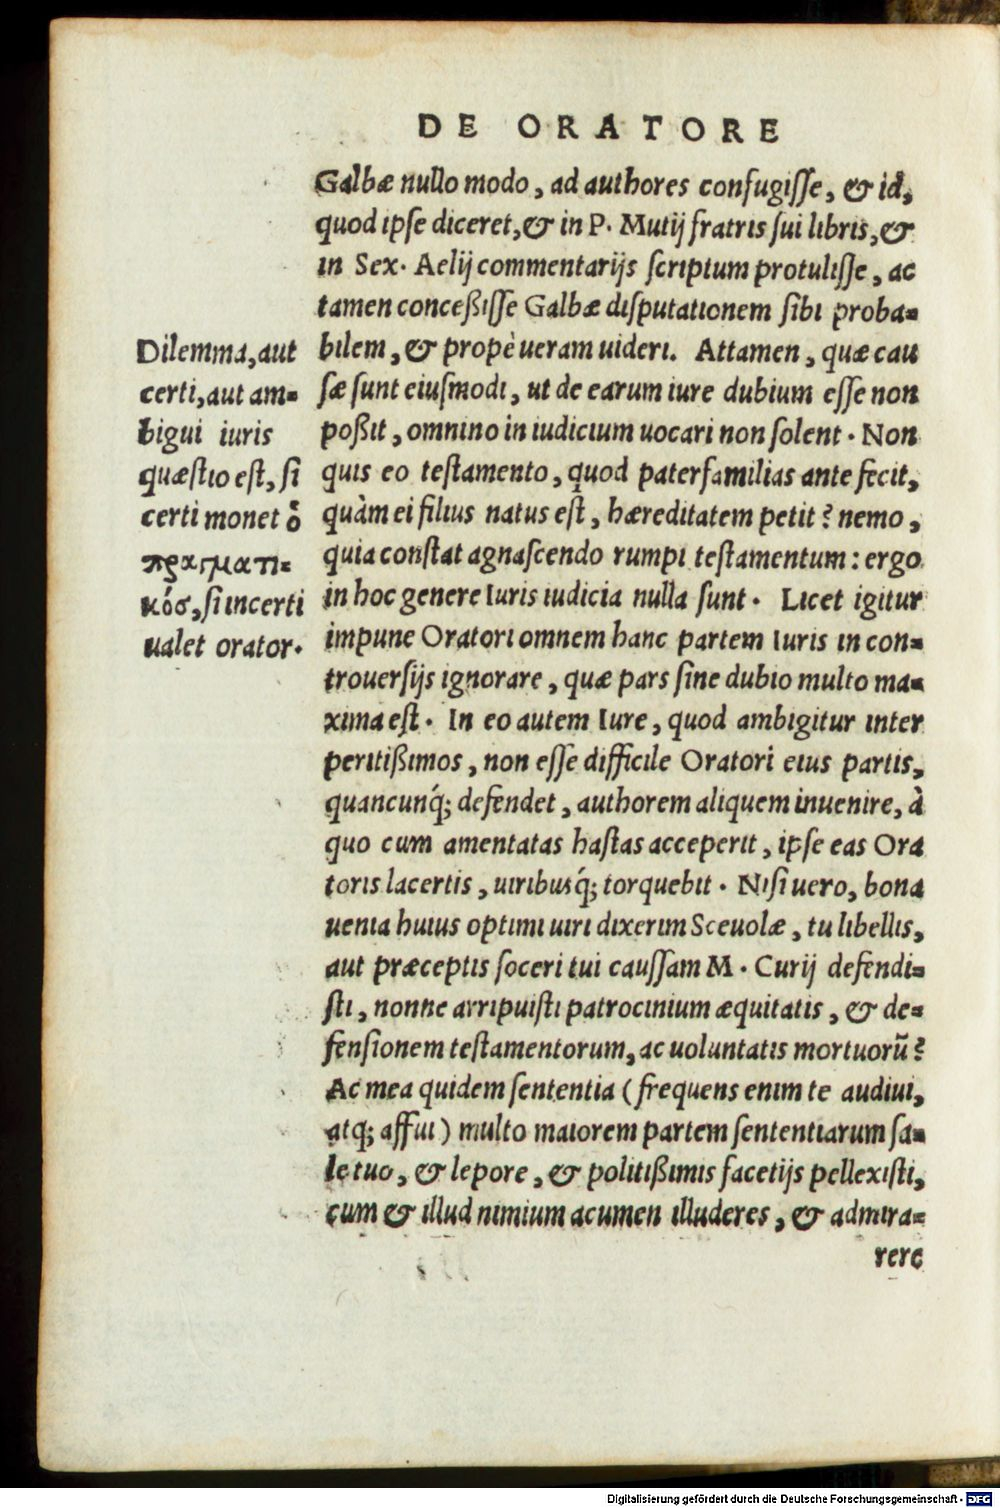 DE ORATORE
Galbæ nullo modo, ad authores confugiſſe, & id,
quod ipſe diceret, & in P. Mutij fratris ſui libris, &
in Sex. Aelij commentarijs ſcriptum protuliſſe, ac
tamen conceßiſſe Galbæ diſputationem ſibi proba=
bilem, & propè ueram uideri. Attamen, quæ cau
ſæ ſunt eiuſmodi, ut de earum iure dubium eſſe non
poßit, omnino in iudicium uocari non ſolent. Non
quis eo teſtamento, quod paterfamilias ante fecit,
quàm ei filius natus eſt, hæreditatem petit? nemo,
quia conſtat agnaſcendo rumpi teſtamentum: ergo
in hoc genere Iuris iudicia nulla ſunt. Licet igitur
impune Oratori omnem hanc partem Iuris in con=
trouerſijs ignorare, quæ pars ſine dubio multo ma=
xima eſt. In eo autem Iure, quod ambigitur inter
peritißimos, non eſſe difficile Oratori eius partis,
quancunq́; defendet, authorem aliquem inuenire, à
quo cum amentatas haſtas acceperit, ipſe eas Ora
toris lacertis, uiribusq́; torquebit. Niſi uero, bona
uenia huius optimi uiri dixerim Sceuolæ, tu libellis,
aut præceptis ſoceri tui cauſſam M. Curij defendi=
ſti, nonne arripuiſti patrocinium æquitatis, & de=
fenſionem teſtamentorum, ac uoluntatis mortuorũ?
Ac mea quidem ſententia (frequens enim te audiui,
atq; affui) multo maiorem partem ſententiarum ſa=
le tuo, & lepore, & politißimis facetijs pellexiſti,
cum & illud nimium acumen illuderes, & admira=
rere
Dilemma, aut
certi, aut am=
bigui iuris
quæſtio eſt, ſi
certi monet ὁ
πραγματι=
κός, ſi incerti
ualet orator.
Digitalisierung gefördert durch die Deutsche Forschungsgemeinschaft - DFG